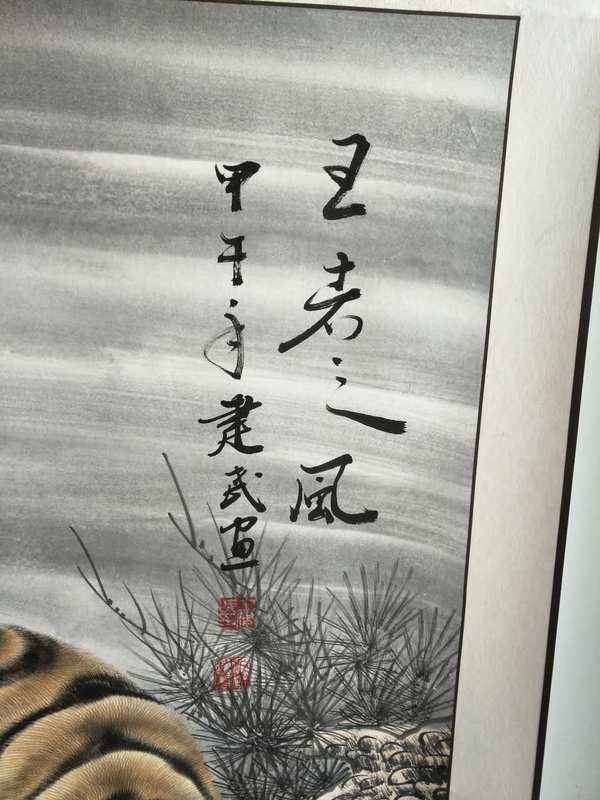 王者之风
甲午年建武画